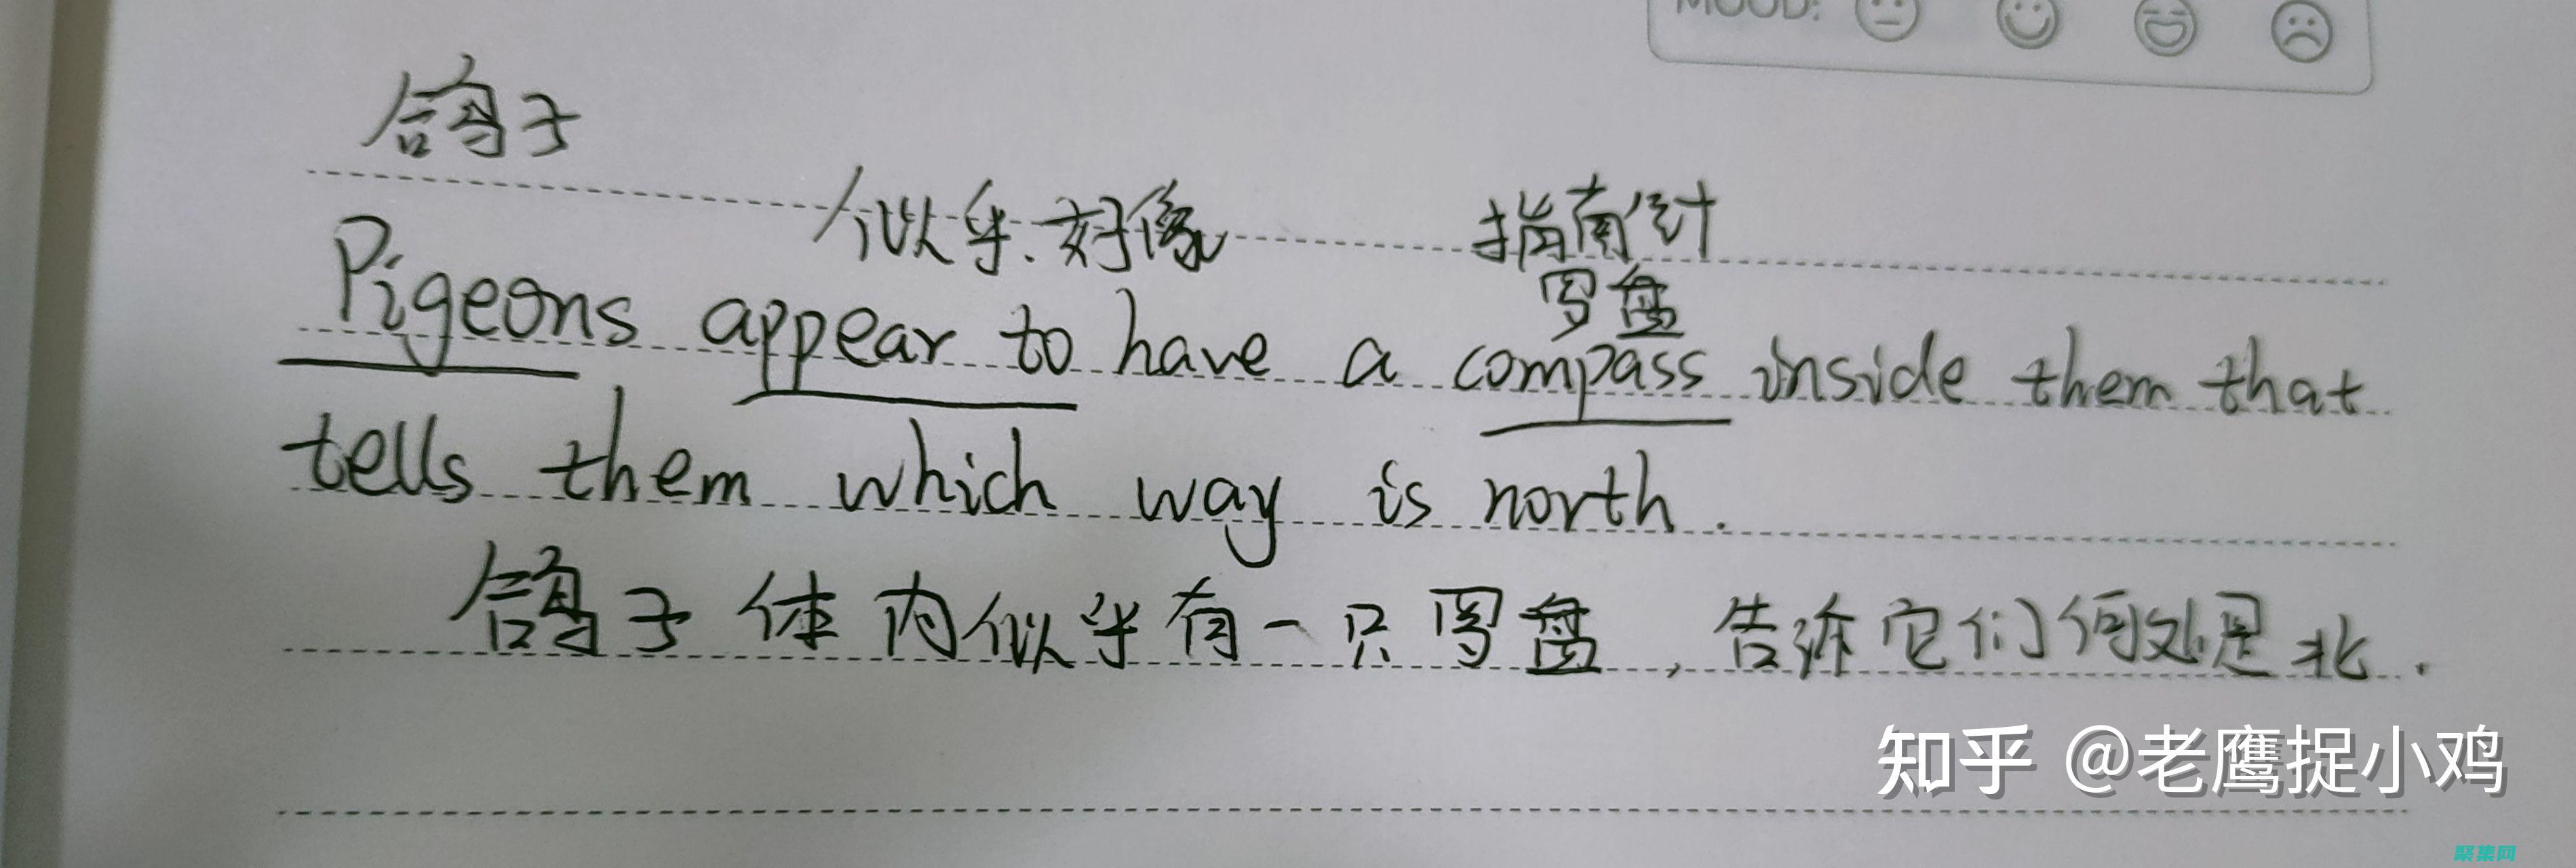 MOOD:
鸽子
似乎、好像 指南针
罗盘
Pigeons appear to have a compass inside them that
tells them which way is north.
鸽子体内似乎有一只罗盘,告诉它们何处是北.
知乎 @老鹰捉小鸡
聚集网